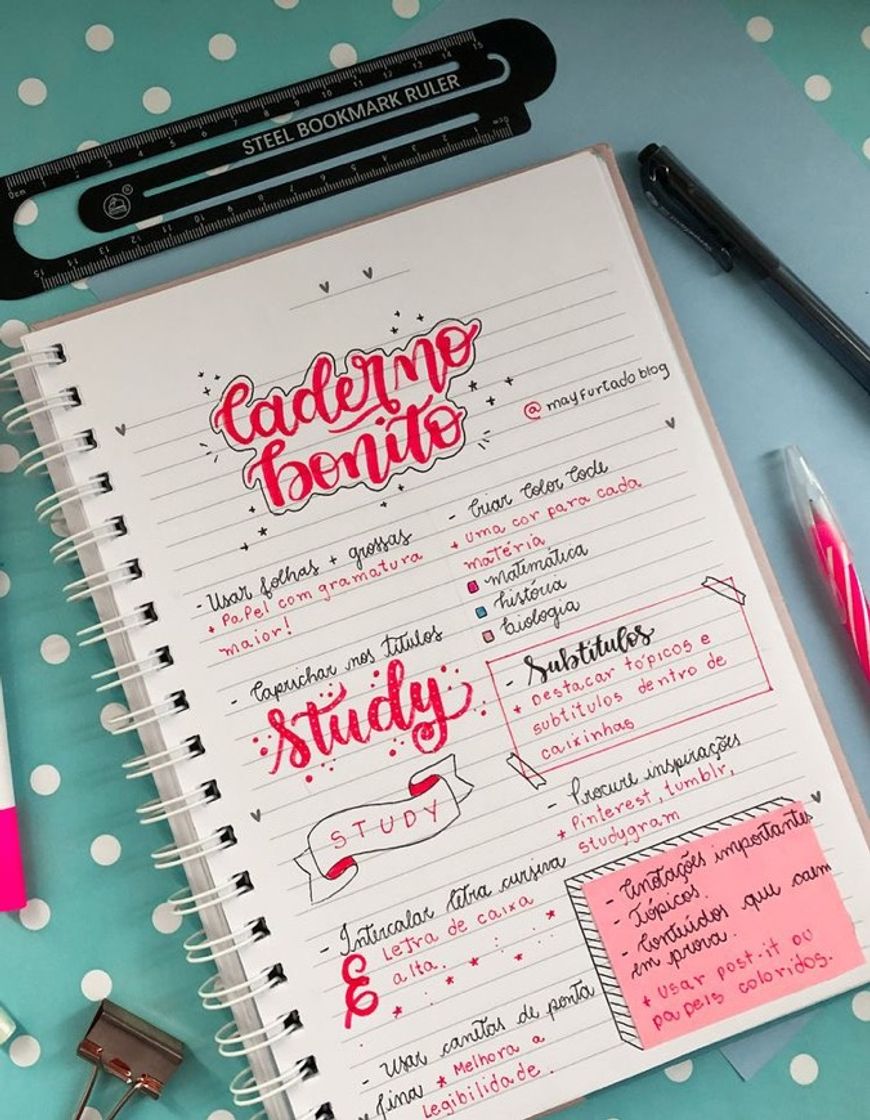 STEEL BOOKMARK RULER
caderno
bonito
@mayfurtadoblog
- Usar folhas + grossas
+ Papel com gramatura
maior!
- Caprichar nos títulos
Study
STUDY
- Intercalar letra cursiva
E Letra de caixa
alta.
- Usar canetas de ponta
fina * Melhora a
Legibilidade.
- Criar Color Code
+ uma cor para cada
matéria
matemática
história
biologia
- Subtítulos
* Destacar tópicos e
subtítulos dentro de
caixinhas
- Procure inspirações
* Pinterest, tumblr,
studygram
- Anotações importantes
- Tópicos.
- Conteúdos que caem
em prova.
+ usar post-it ou
papeis coloridos.